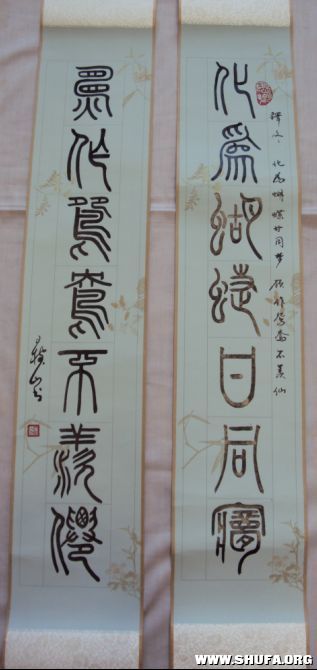 化爲蝴蜨甘同夢
释文：化为蝴蝶甘同梦 愿作鸳鸯不羡仙
願作鴛鴦不羨僊
WWW.SHUFA.ORG